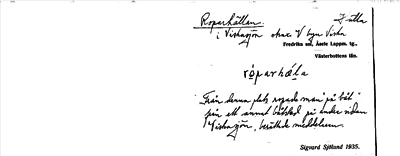 Roparhällan.
i Viskasjön strax V byn Viska
Fredrika sn, Åsele Lappm. tg.,
Västerbottens län.
róparhǽla
"Från denna plats ropade man på båt"
från ett annat båtställ på andra sidan
Viskasjön, berättade meddelaren.
Sigvard Sjölund 1935.